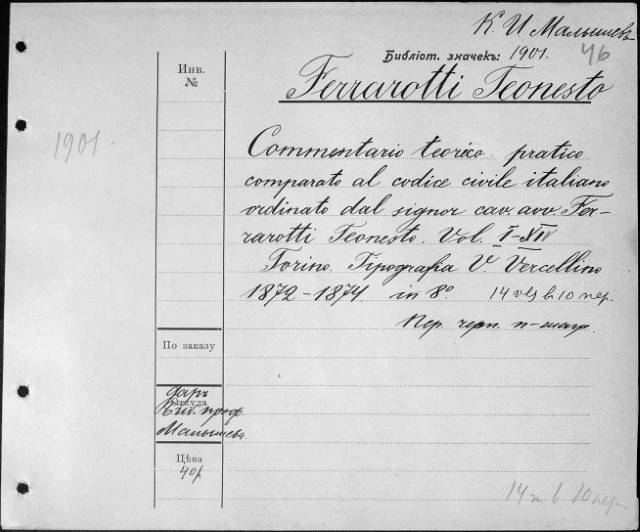 К. И Малышевъ
46
Библіот. значекъ: 1901.
Ferrarotti Teonesto
Инв.
№
1901.
Commentario teorico pratico
comparato al codice civile italiano
ordinato dal signor cav. avv. Fer-
rarotti Teonesto. Vol. I-XIV
Torino. Tipografia V. Vercellino
1872-1874 in 8° 14 vls в 10 пер.
Пер. черн. п-шагр.
По заказу
Откуда
Даръ
Библ. проф.
Малышева
Цѣна
40 р.
14 т в 10 пер.